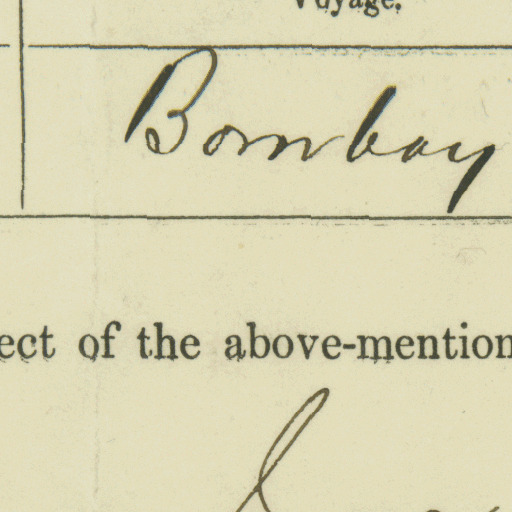 Voyage.
Bombay
ect of the above-mention